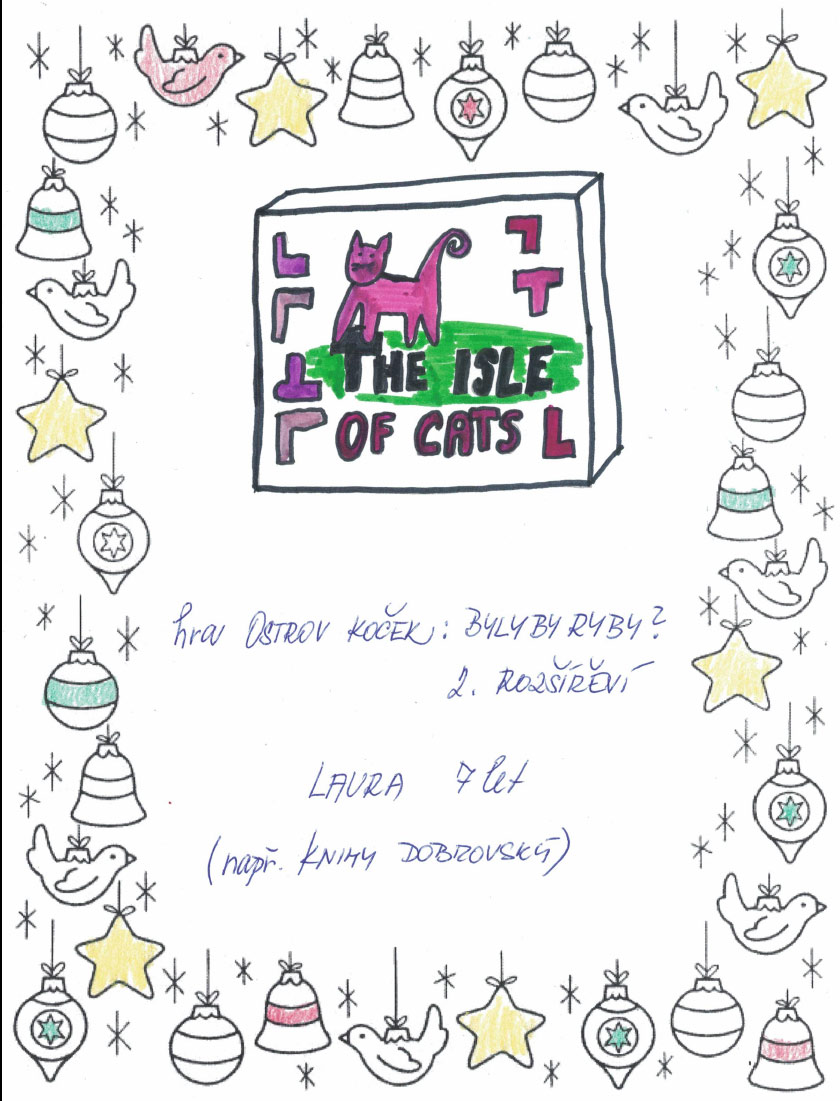 THE ISLE
OF CATS
hra OSTROV KOČEK: BYLYBY RYBY?
2. ROZŠÍŘENÍ
LAURA 7 let
(např. KNIHY DOBROVSKÝ)